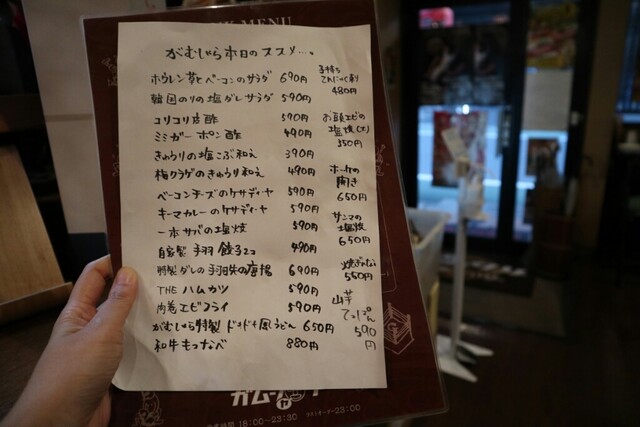 MENU
がむしゃら本日のススメ...。
ホウレン草とベーコンのサラダ 690円
韓国のりの塩ダレサラダ 590円
コリコリ皮酢 590円
ミミガーポン酢 490円
きゅうりの塩こぶ和え 390円
梅クラゲのきゅうり和え 490円
ベーコンチーズのケサディーヤ 590円
キーマカレーのケサディーヤ 590円
一本サバの塩焼 590円
自家製 手羽餃子2コ 490円
特製ダレの手羽先の唐揚 690円
THE ハムカツ 590円
肉巻エビフライ 590円
がむしゃら特製 風うどん 650円
和牛もつなべ 880円
子持ち
こんにゃく刺り
480円
お頭エビの
塩焼(大)
350円
ホッケの
開き
650円
サンマの
塩焼
650円
焼ぎんなん
550円
山芋
てっぱん
590
円
営業時間 18:00~23:30 ラストオーダー 23:00